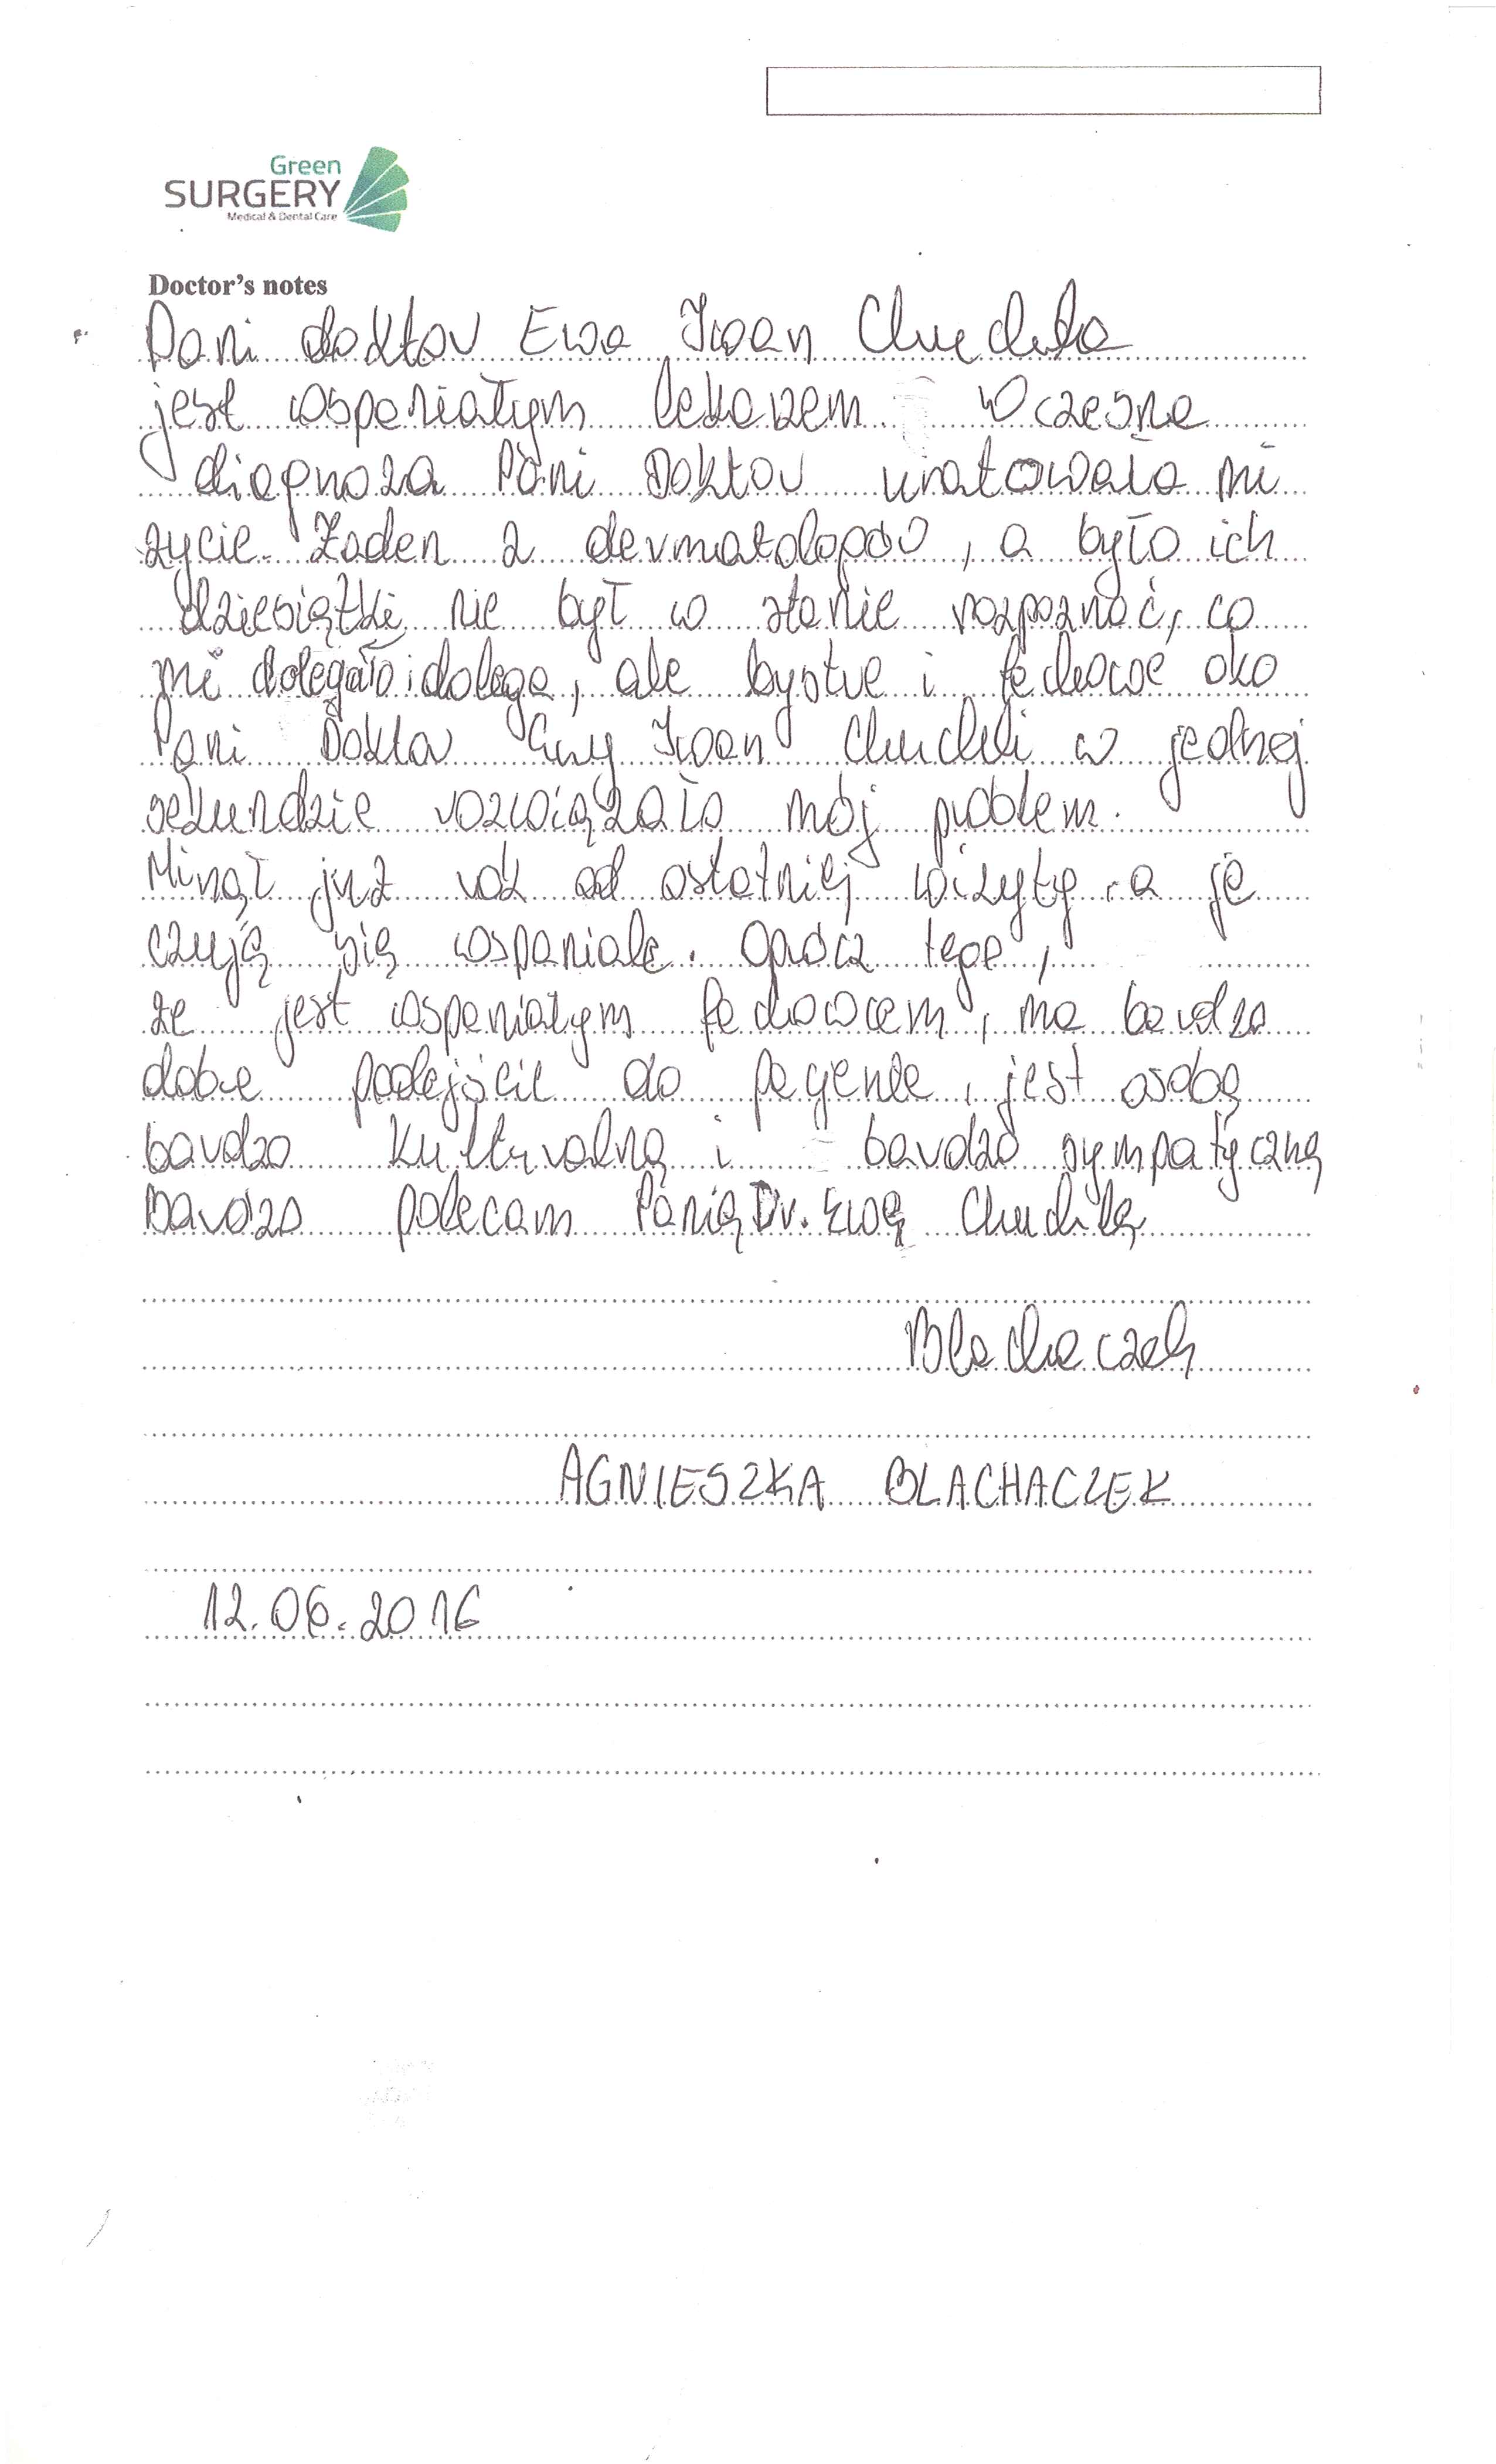 Green
SURGERY
Medical & Dental Care
Doctor's notes
Pani doktor Ewa Iwan Chuchla
jest wspaniałym lekarzem. Wczesna
diagnoza Pani Doktor uratowała mi
życie. Żaden z dermatologów, a było ich
dziesiątki, nie był w stanie rozpoznać, co
mi dolegało i dolega, ale bystre i fachowe oko
Pani Doktor Ewy Iwan Chuchli w jednej
sekundzie rozwiązało mój problem.
Minął już rok od ostatniej wizyty, a ja
czuję się wspaniale. Oprócz tego,
że jest wspaniałym fachowcem, ma bardzo
dobre podejście do pacjenta, jest osobą
bardzo kulturalną i bardzo sympatyczną
Bardzo polecam Panią Dr. Ewę Chuchlę
Blachaczek
AGNIESZKA BLACHACZEK
12.06.2016